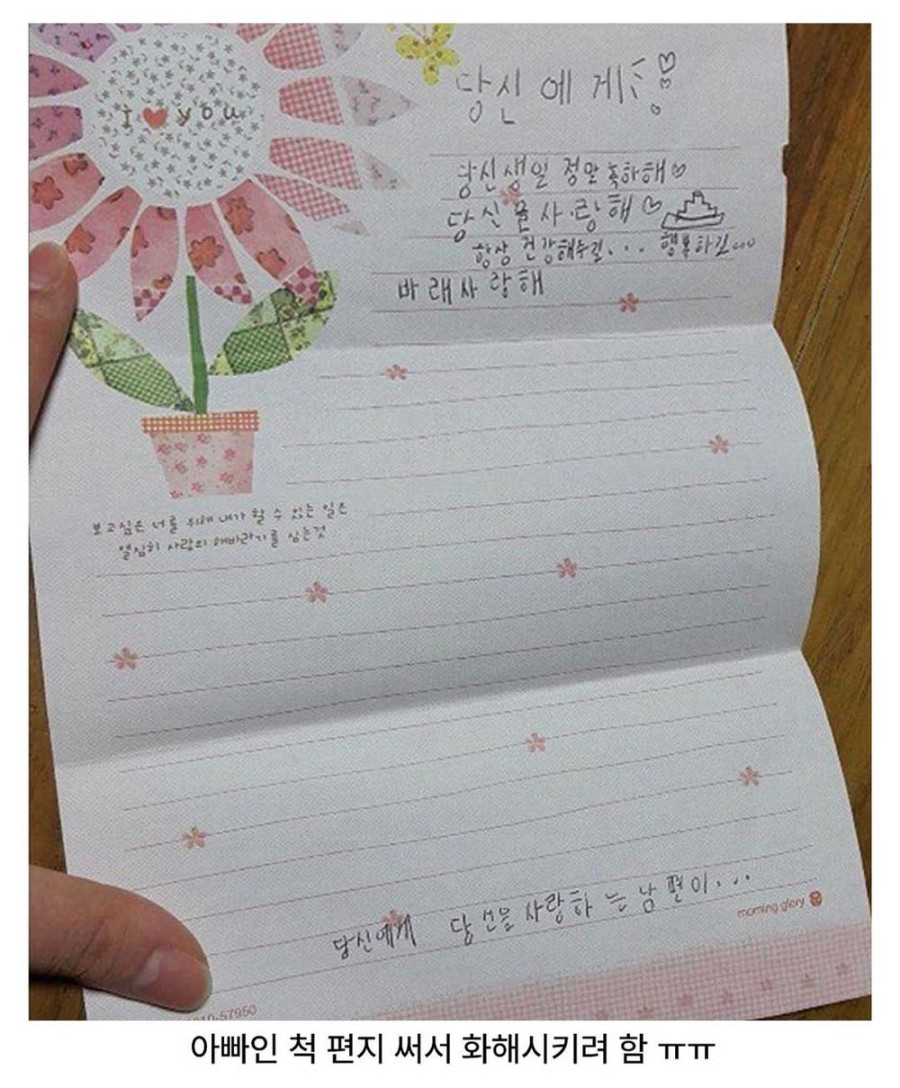 I ♥ you
당신에게
당신생일 정말 축하해♡
당신을 사랑해♡
항상 건강해주길... 행복하길...
바래사랑해
보고싶은 너를 위해 내가 할 수 있는 일은
열심히 사랑의 해바라기를 심는것
당신에게 당신을 사랑하는 남편이...
morning glory
010-57950
아빠인 척 편지 써서 화해시키려 함 ㅠㅠ